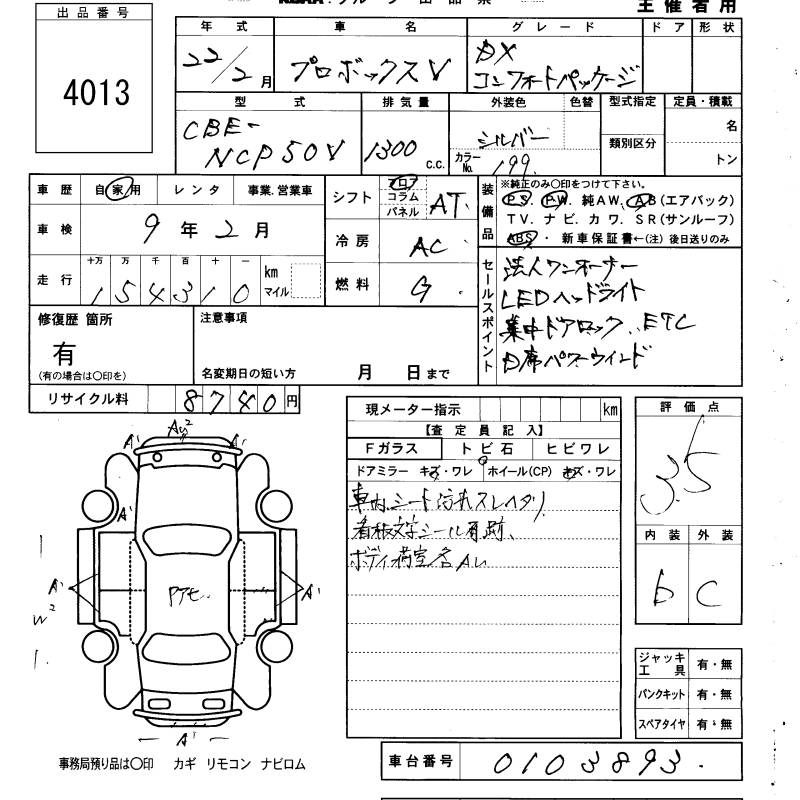 主催者用
出品番号
4013
年式 車名 グレード ドア 形状
22/2月 プロボックスV DX
コンフォートパッケージ
型式 排気量 外装色 色替 型式指定 定員・積載
CBE-
NCP50V 1300 c.c. シルバー カラーNo. 199 類別区分 名
トン
車歴 自家用 レンタ 事業.営業車
車検 9年2月
走行 十万 万 千 百 十 一 km マイル
154310
シフト フロア コラム パネル AT.
冷房 AC
燃料 G.
装備品 ※純正のみ○印をつけて下さい。
PS. PW. 純AW. AB(エアバック)
TV. ナビ. カワ. SR(サンルーフ)
ABS・新車保証書←(注)後日送りのみ
セールスポイント 法人ワンオーナー
LEDヘッドライト
集中ドアロック、ETC
D席パワーウインド
修復歴 箇所
有
(有の場合は○印を)
注意事項
名変期日の短い方 月 日まで
リサイクル料 8740円
現メーター指示 km
【査定員記入】
Fガラス トビ石 ヒビワレ
ドアミラー キズ・ワレ ホイール(CP) キズ・ワレ
車内、シート汚れスレヘタリ
看板文字シール有、跡、
ボディ荷室各AU
評価点
3.5
内装 外装
b C
AU2
A' A'
A'
A' A'
W2
PアモA'
ジャッキ工具 有・無
パンクキット 有・無
スペアタイヤ 有・無
事務局預り品は○印 カギ リモコン ナビロム
車台番号 0103893.